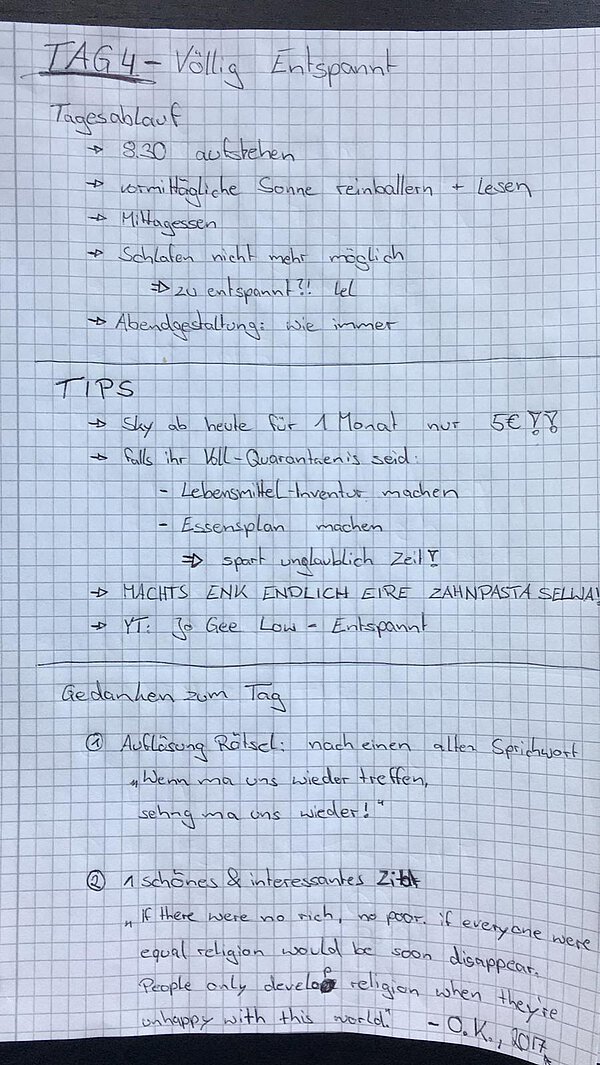 TAG 4 - Völlig Entspannt
Tagesablauf
→ 8.30 aufstehen
→ vormittägliche Sonne reinballern + Lesen
→ Mittagessen
→ Schlafen nicht mehr möglich
⇒ zu entspannt?! lel
→ Abendgestaltung: wie immer
TIPS
→ Sky ab heute für 1 Monat nur 5€!!
→ falls ihr Voll-Quarantaenis seid:
- Lebensmittel-Inventur machen
- Essensplan machen
⇒ spart unglaublich Zeit!
→ MACHTS ENK ENDLICH EIRE ZAHNPASTA SELWA!
→ YT: Jo Gee Low - Entspannt
Gedanken zum Tag
① Auflösung Rätsel: nach einen alten Sprichwort
„Wenn ma uns wieder treffen,
sehng ma uns wieder!"
② 1 schönes & interessantes Zitat
„If there were no rich, no poor. if everyone were
equal religion would be soon disappear.
People only develop religion when they're
unhappy with this world." - O.K., 2017